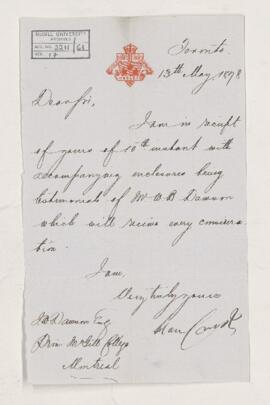 McGILL UNIVERSITY
ARCHIVES
ACC. NO.
REF.
Toronto
13th May 1898
Dear Sir,
I am in receipt
of yours of 10th instant with
accompanying enclosures being
testimonials of Mr W B Dawson
which will receive every considera
tion
I am,
Very truly yours
J W Dawson Esq
Prin McGill College
Montreal